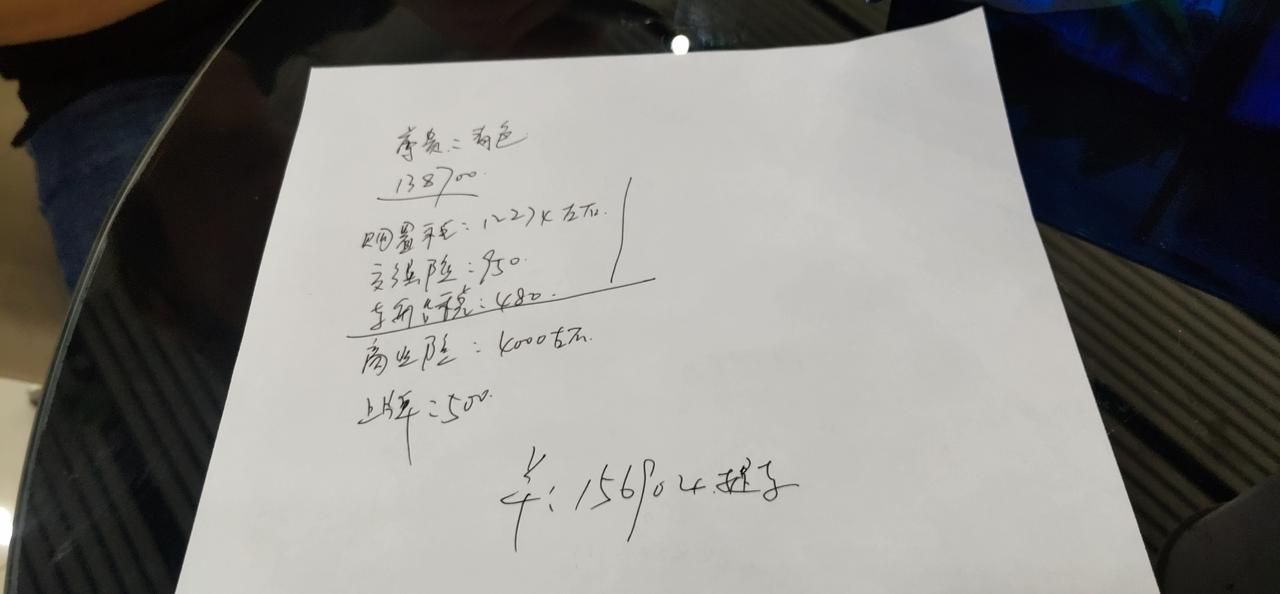 尊贵：青色
138700
购置税：12274左右.
交强险：950.
车船使税：480.
商业险：4000左右.
上牌：500.
共：156904.提车